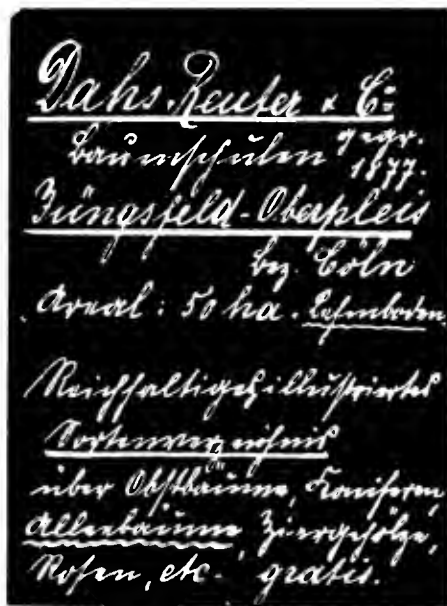 Dahs, Reuter & Co
Baumschulen gegr. 1877.
Jüngsfeld-Oberpleis
Bez. Cöln
Areal: 50 ha. Lehmboden
Reichhaltiges illustriertes
Sortenverzeichnis
über Obstbäume, Koniferen,
Alleebäume, Ziergehölze,
Rosen, etc. gratis.